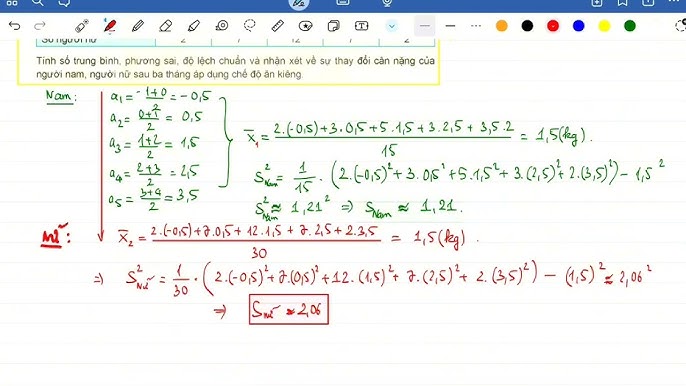 Số người nữ 2 7 12 7 2
Tính số trung bình, phương sai, độ lệch chuẩn và nhận xét về sự thay đổi cân nặng của
người nam, người nữ sau ba tháng áp dụng chế độ ăn kiêng.
Nam:
a₁ = (-1+0)/2 = -0,5
a₂ = (0+1)/2 = 0,5
a₃ = (1+2)/2 = 1,5
a₄ = (2+3)/2 = 2,5
a₅ = (3+4)/2 = 3,5
x̄₁ = (2.(-0,5) + 3.0,5 + 5.1,5 + 3.2,5 + 3,5.2)/15 = 1,5 (kg).
S²Nam = 1/15 . (2.(-0,5)² + 3.0,5² + 5.1,5² + 3.(2,5)² + 2.(3,5)²) - 1,5²
S²Nam ≈ 1,21² ⇒ SNam ≈ 1,21.
Nữ:
x̄₂ = (2.(-0,5) + 7.0,5 + 12.1,5 + 7.2,5 + 2.3,5)/30 = 1,5 (kg).
⇒ S²Nữ = 1/30 . (2.(-0,5)² + 7.(0,5)² + 12.(1,5)² + 7.(2,5)² + 2.(3,5)²) - (1,5)² ≈ 2,06²
⇒ SNữ ≈ 2,06